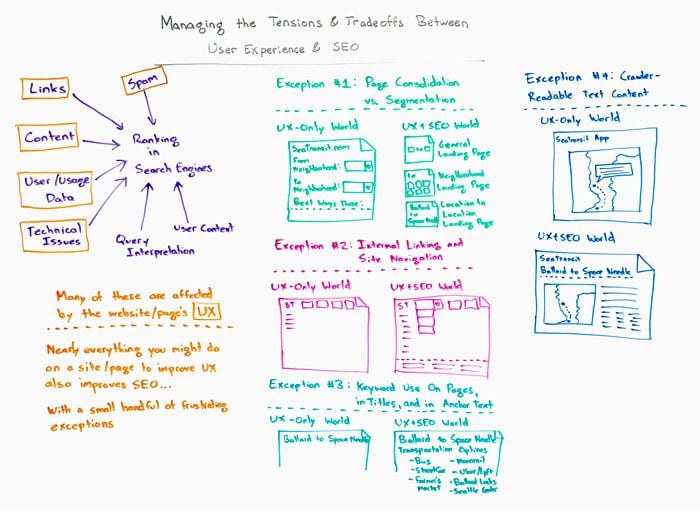 Managing the Tensions & Tradeoffs Between
User Experience & SEO
Links
Spam
Content
User/Usage
Data
Technical
Issues
Ranking
in
Search Engines
Query
Interpretation
User Context
Many of these are affected
by the website/page's UX
Nearly everything you might do
on a site/page to improve UX
also improves SEO...
With a small handful of frustrating
exceptions
Exception #1: Page Consolidation
vs. Segmentation
UX-Only World
SeaTransit.com
From
Neighborhood:
To
Neighborhood:
Best Ways There:
UX+SEO World
General
Landing Page
to
Neighborhood
Landing Page
Ballard
to
Space Needle
Location to
Location
Landing Page
Exception #2: Internal Linking and
Site Navigation
UX-Only World
ST
UX+SEO World
ST
Exception #3: Keyword Use On Pages,
in Titles, and in Anchor Text
UX-Only World
Ballard to Space Needle
UX+SEO World
Ballard to Space Needle
Transportation Options
- Bus
- Monorail
- Streetcar
- Uber/Lyft
- Farmer's
Market
- Ballard Locks
- Seattle Center
Exception #4: Crawler-
Readable Text Content
UX-Only World
SeaTransit App
UX+SEO World
SeaTransit
Ballard to Space Needle